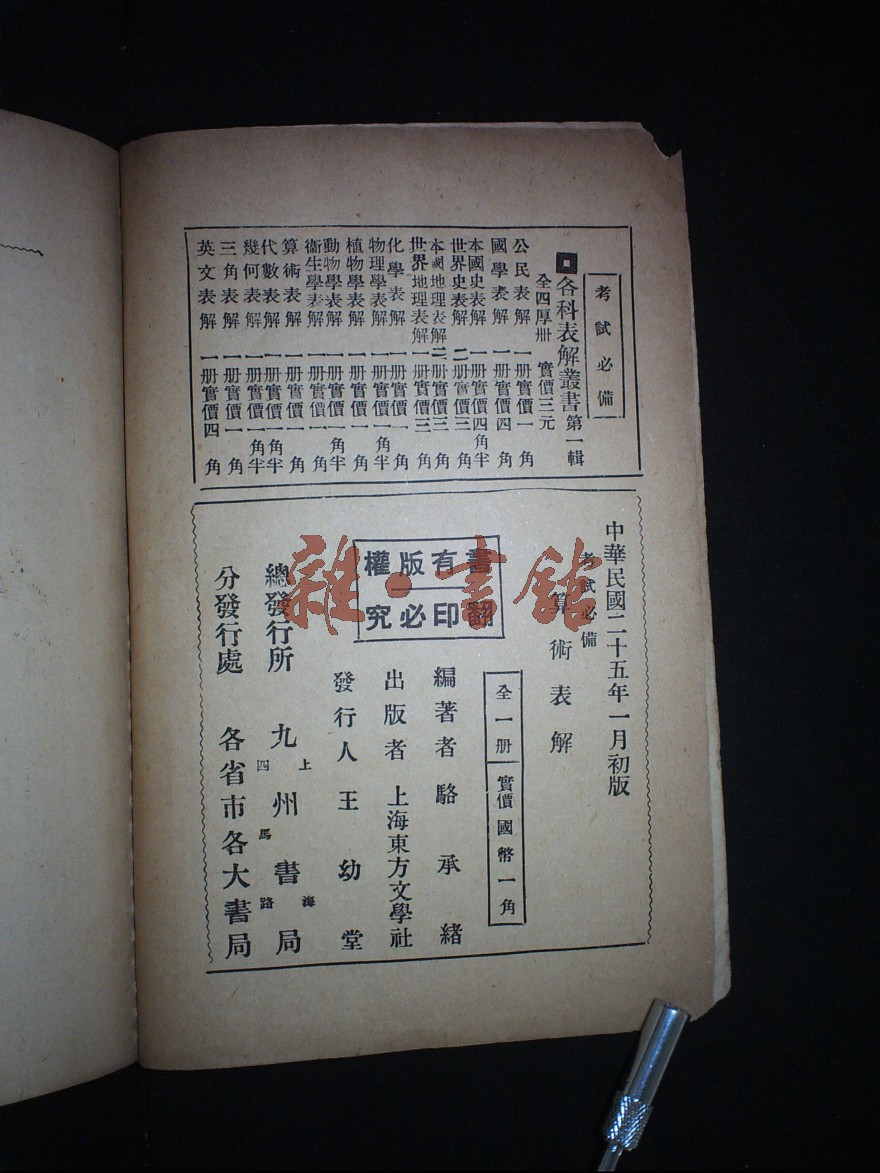 考試必備
各科表解叢書第一輯
全四厚册 實價三元
公民表解 一册實價一角
國學表解 一册實價四角
本國史表解 一册實價四角半
世界史表解 二册實價三角
本國地理表解 二册實價三角
世界地理表解 一册實價三角
化學表解 一册實價一角
物理學表解 一册實價一角半
植物學表解 一册實價一角
動物學表解 一册實價一角半
衞生學表解 一册實價一角
算術表解 一册實價一角
代數表解 一册實價一角半
幾何表解 一册實價一角半
三角表解 一册實價一角
英文表解 一册實價四角
中華民國二十五年一月初版
考試必備
算術表解
全一册 實價國幣一角
書有版權
翻印必究
編著者 駱承緒
出版者 上海東方文學社
發行人 王幼堂
上海
總發行所 九州書局
四馬路
分發行處 各省市各大書局
雜·書館